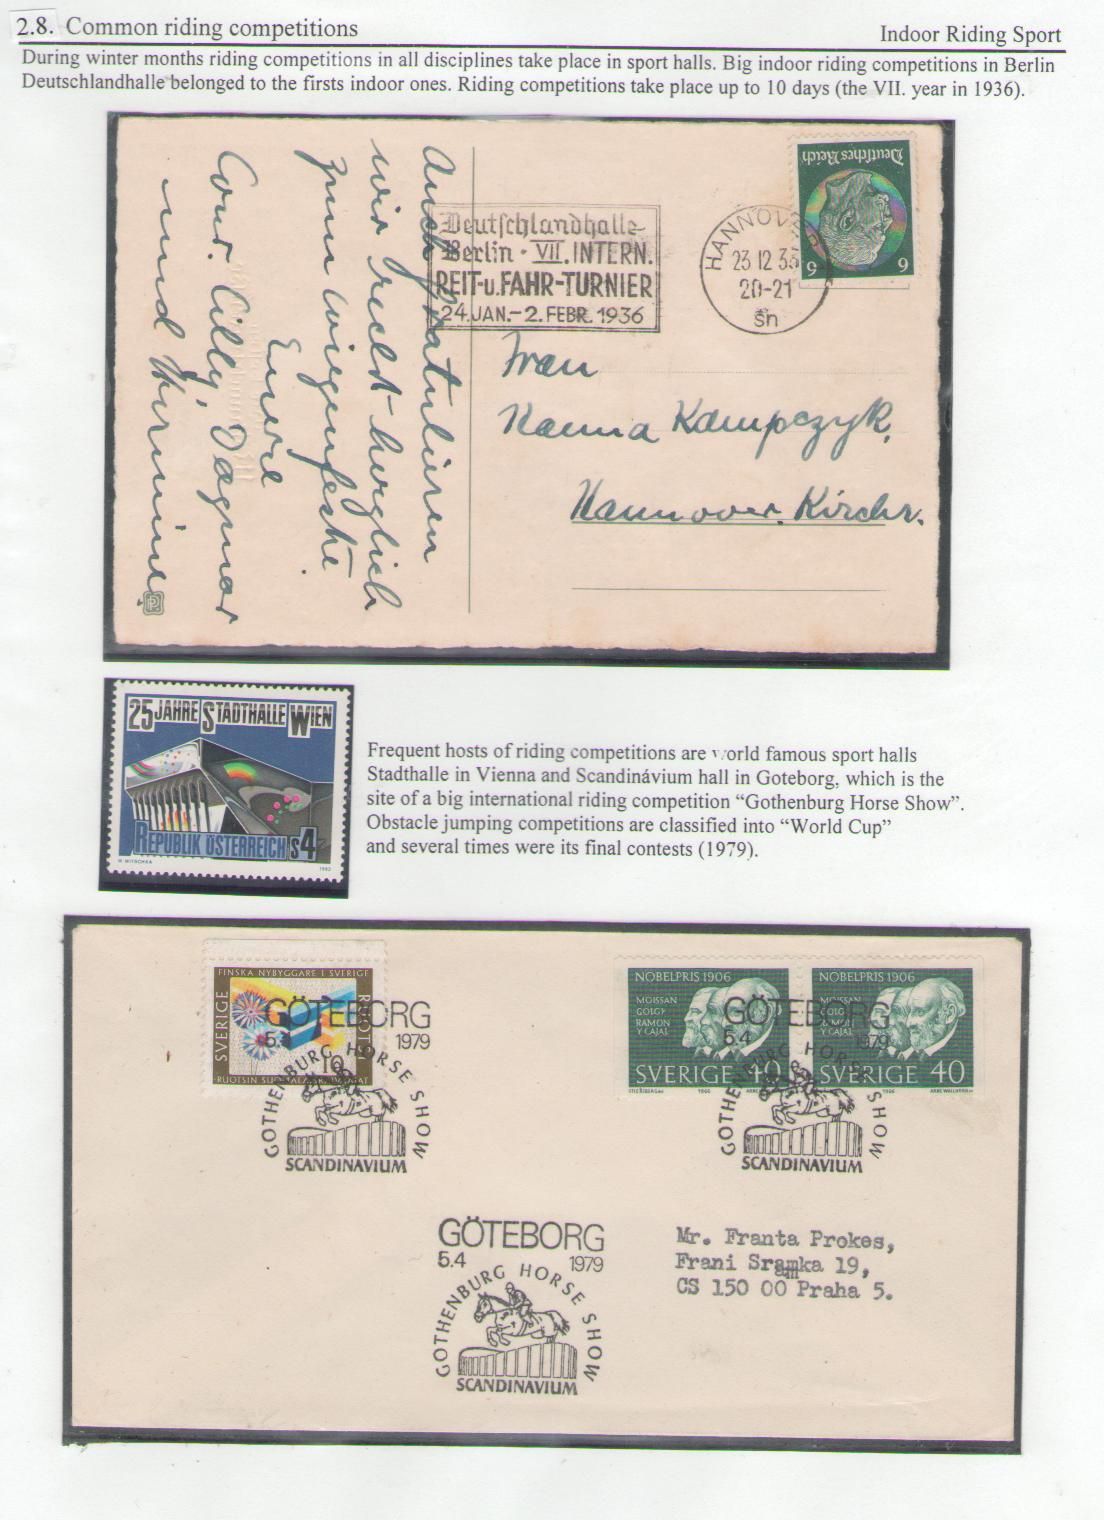 2.8. Common riding competitions
Indoor Riding Sport
During winter months riding competitions in all disciplines take place in sport halls. Big indoor riding competitions in Berlin
Deutschlandhalle belonged to the firsts indoor ones. Riding competitions take place up to 10 days (the VII. year in 1936).
Auch gratulieren
wir recht herzlich
zum Wiegenfeste
Eure
Cour. Cilly, Dagmar
und
Deutschlandhalle
Berlin · VII. INTERN.
REIT-u.FAHR-TURNIER
24.JAN.–2.FEBR.1936
HANNOVER
23 12 35
20-21
Deutsches Reich
6 6
Frau
Hanna Kampczyk.
Hannover. Kirchr.
25 JAHRE STADTHALLE WIEN
REPUBLIK ÖSTERREICH S4
Frequent hosts of riding competitions are world famous sport halls
Stadthalle in Vienna and Scandinávium hall in Goteborg, which is the
site of a big international riding competition “Gothenburg Horse Show”.
Obstacle jumping competitions are classified into “World Cup”
and several times were its final contests (1979).
FINSKA NYBYGGARE I SVERIGE
SVERIGE
RUOTSI
10
GÖTEBORG
5.4 1979
GOTHENBURG HORSE SHOW
SCANDINAVIUM
NOBELPRIS 1906
MOISSAN
GOLGI
RAMON
Y CAJAL
SVERIGE 40
1966
NOBELPRIS 1906
SVERIGE 40
1966
GÖTEBORG
5.4 1979
GOTHENBURG HORSE SHOW
SCANDINAVIUM
GÖTEBORG
5.4 1979
GOTHENBURG HORSE SHOW
SCANDINAVIUM
Mr. Franta Prokes,
Frani Sramka 19,
CS 150 00 Praha 5.